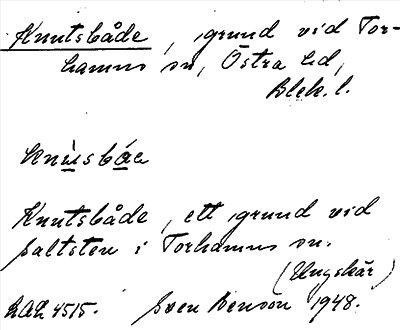 Knutsbåde, grund vid Tor-
hamns sn, Östra hd,
Blek. l.
knùsbåe
Knutsbåde, ett grund vid
Saltsten i Torhamns sn.
(Ungskär)
4515. Sven Benson 1948.